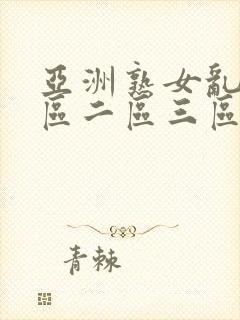 亞洲熟女亂
區二區三區
青棘